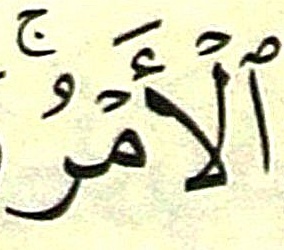 ٱلۡأَمۡرُۚ